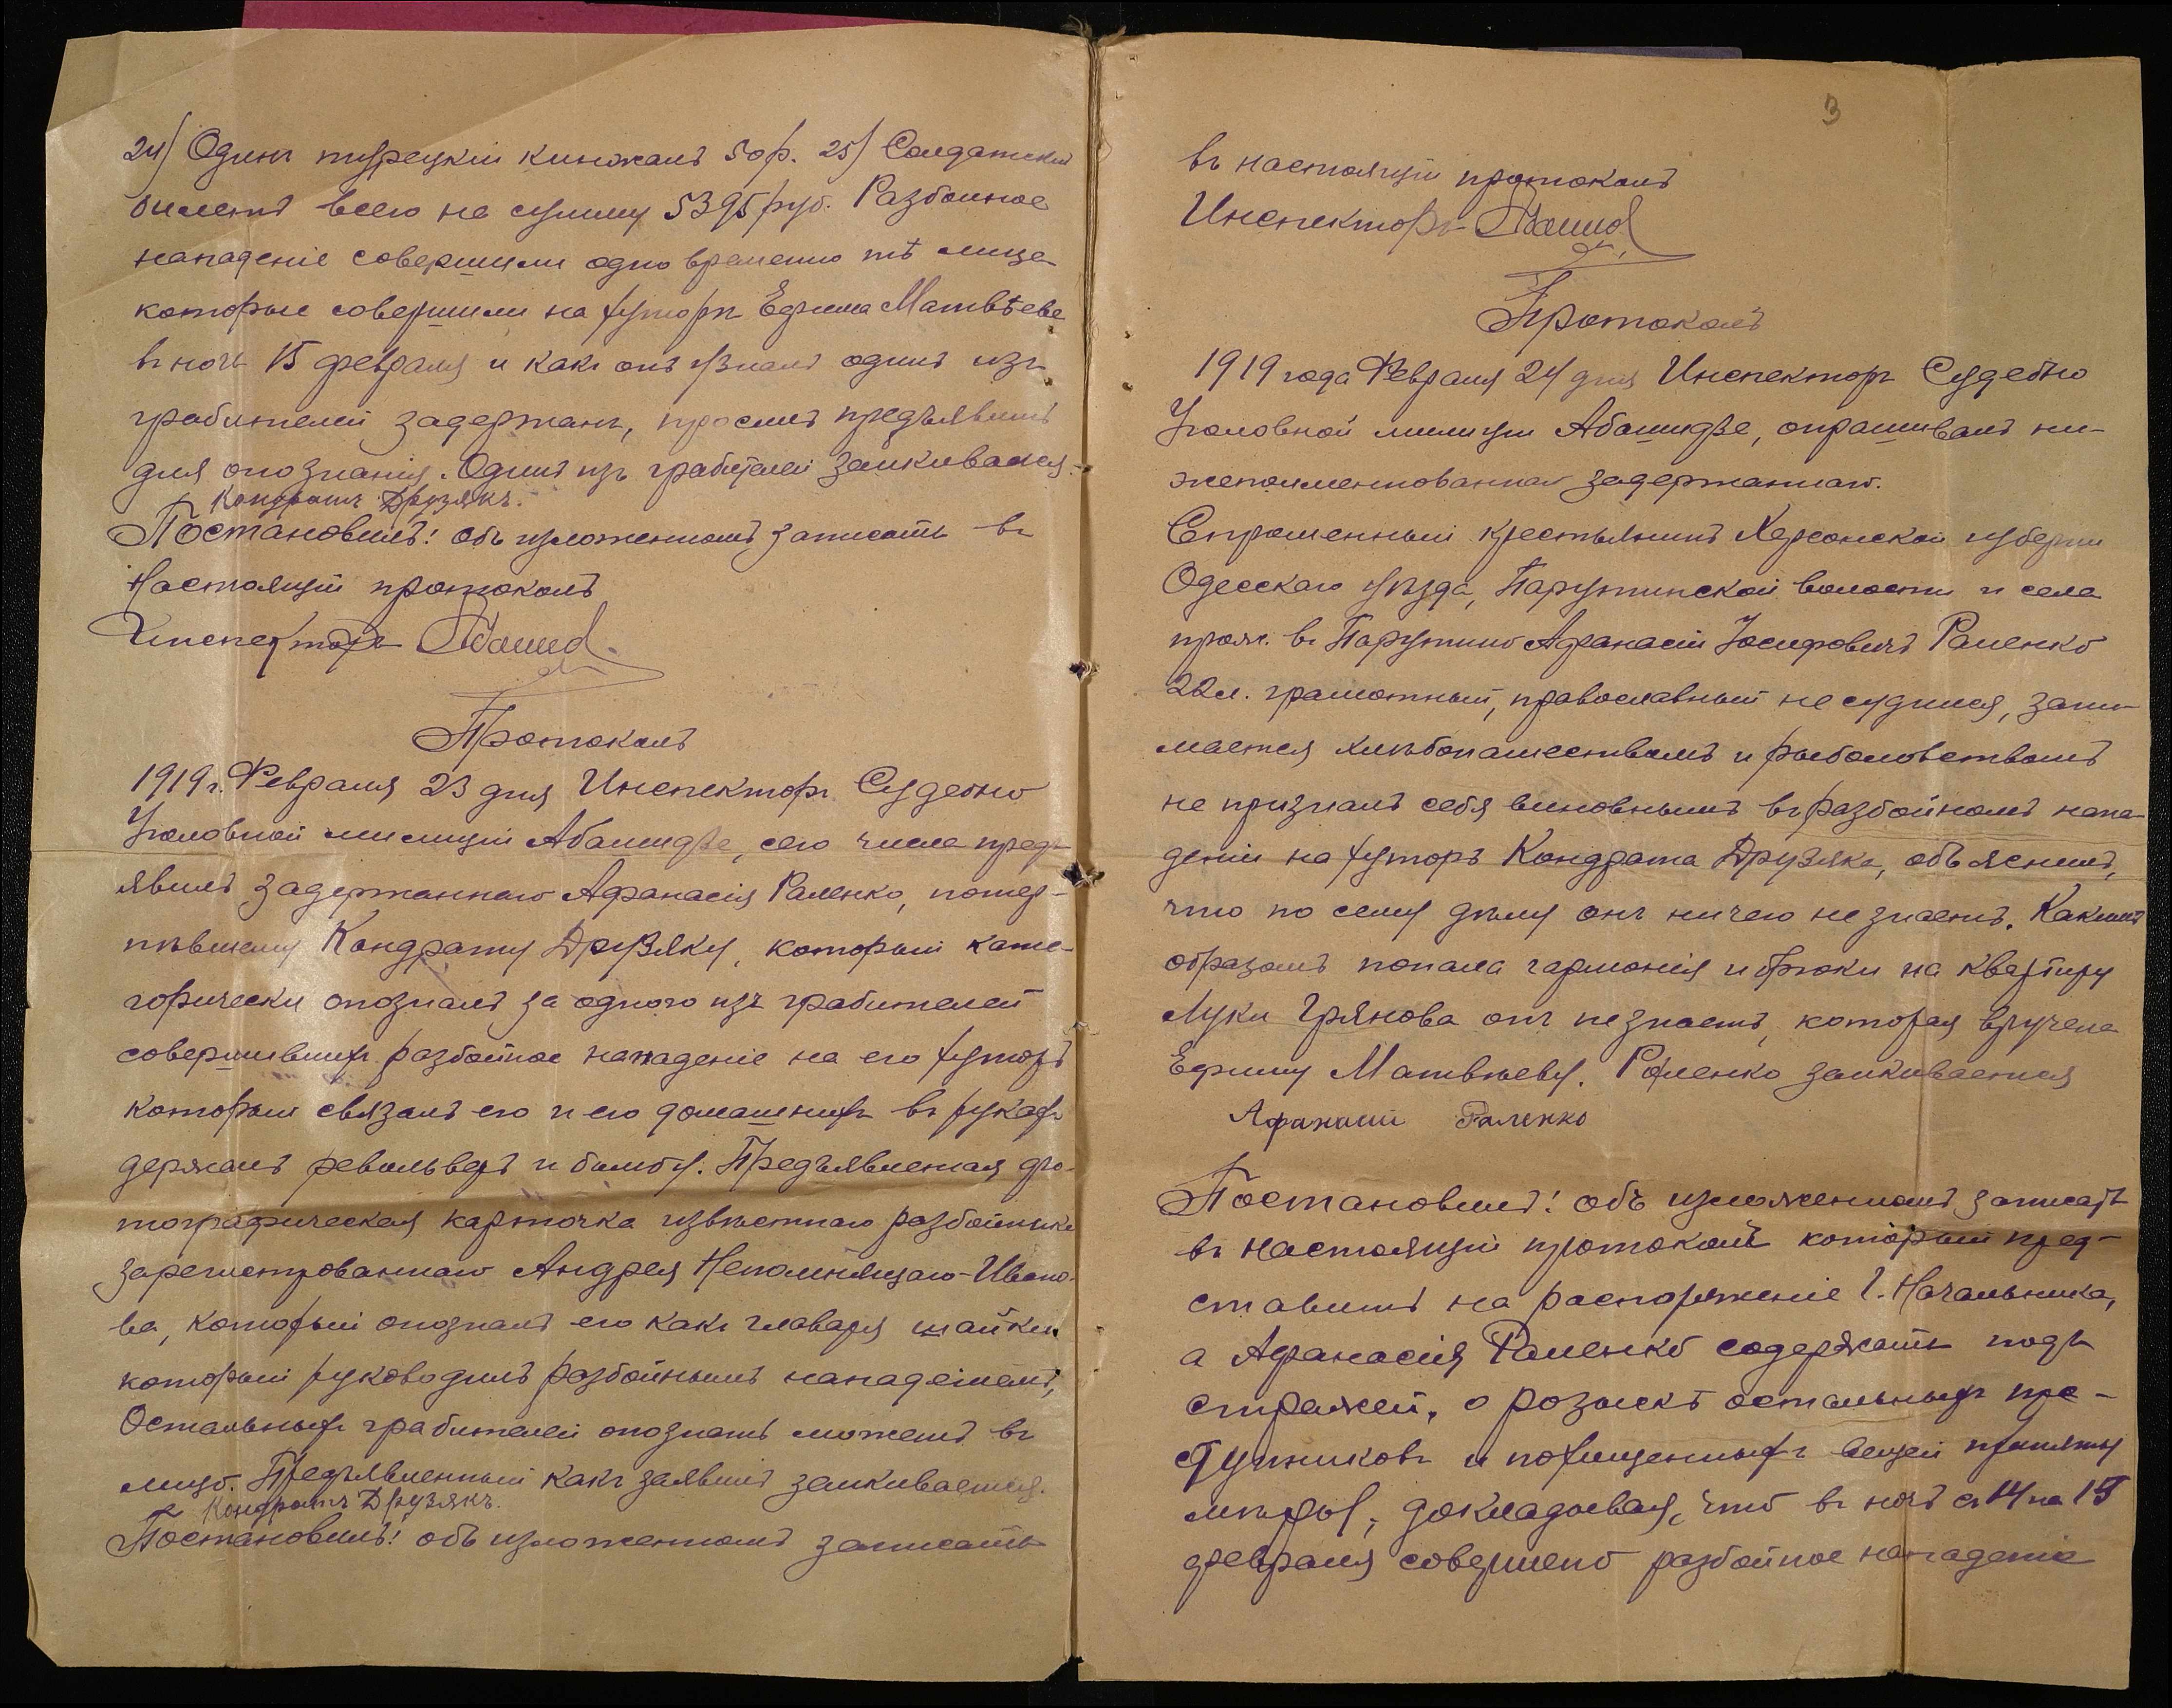 24) Одинъ турецкій кинжалъ 50 р. 25) Солдатскій
билетъ всего на сумму 5395 руб. Разбойное
нападеніе совершили одновременно тѣ лица
которые совершили на хуторъ Ефима Матвѣева
въ ночь 15 февраля и какъ онъ узналъ одинъ изъ
грабителей задержанъ, проситъ предъявить
для опознанія. Одинъ изъ грабителей заикивался.
Кондратъ Друзякъ.
Постановилъ! Объ изложенномъ записать въ
настоящій протоколъ
Инспекторъ Абашид
Протоколъ
1919 г. Февраля 23 дня Инспекторъ Судебно
Уголовной милиціи Абашидзе, сего числа предъ-
явилъ задержаннаго Афанасія Раленко, потер-
пѣвшему Кондрату Друзяку, который кате-
горически опозналъ за одного изъ грабителей
совершившихъ разбойное нападеніе на его хуторъ
который связалъ его и его домашнихъ въ рукахъ
держалъ револьверъ и бомбу. Предъявленная фо-
тографическая карточка извѣстнаго разбойника
зарегистрованнаго Андрея Непомнящаго-Ивано-
ва, который опозналъ его какъ главаря шайки
который руководилъ разбойнымъ нападеніемъ,
Остальныхъ грабителей опознать можетъ въ
лицо. Предъявленный какъ заявилъ заикивается.
Кондратъ Друзякъ.
Постановилъ! объ изложенномъ записать
3
въ настоящій протоколъ
Инспекторъ Абашид
Протоколъ
1919 года Февраля 24 дня Инспекторъ Судебно
Уголовной милиціи Абашидзе, опрашивалъ ни-
жепоименованнаго задержаннаго.
Спрошенный крестьянинъ Херсонской губерніи
Одесскаго уѣзда, Парутинской волости и села
прож. въ Парутино Афанасій Іосифовичъ Раленко
22 л. грамотный, православный не судился, зани-
мается хлѣбопашествомъ и рыболовствомъ
не призналъ себя виновнымъ въ разбойномъ напа-
деніи на хуторъ Кондрата Друзяка, объяснилъ,
что по сему дѣлу онъ ничего не знаетъ. Какимъ
образомъ попала гармонія и брюки на квартиру
Луки Грянова онъ не знаетъ, которая вручена
Ефиму Матвѣеву. Раленко заикивается
Афанасий Раленко
Постановилъ! объ изложенномъ записать
въ настоящій протоколъ который пред-
ставить на распоряженіе Г. Начальника,
а Афанасія Раленко содержать подъ
стражей, о розыскѣ остальныхъ пре-
ступниковъ и похищенныхъ вещей приняты
мѣры, докладывая, что въ ночь съ 14 на 15
февраля совершено разбойное нападеніе